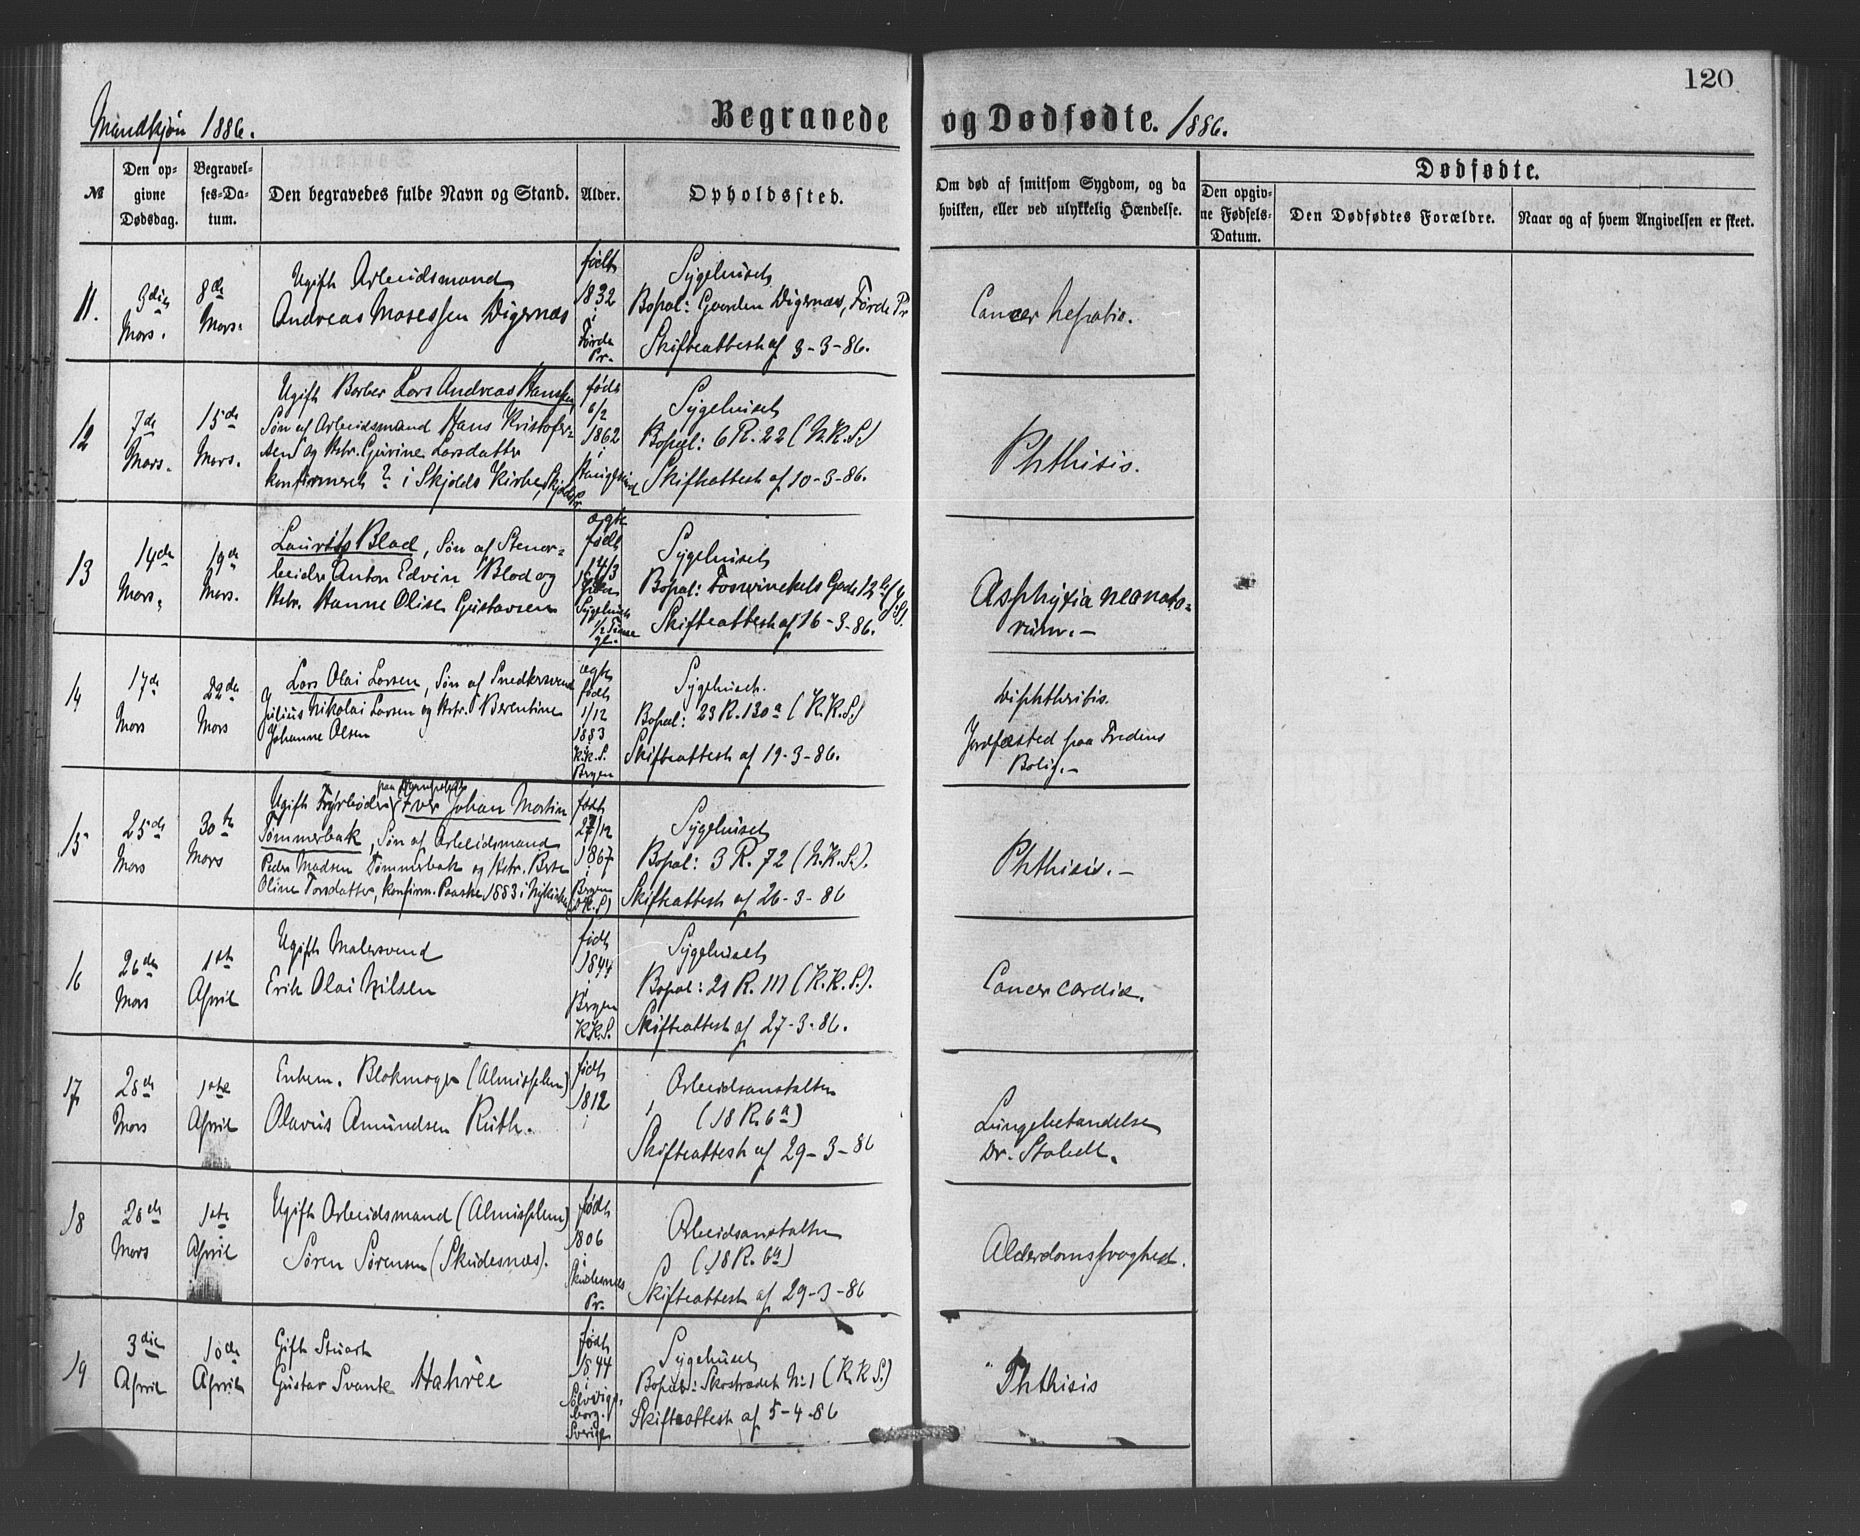 120
Mandkjøn 1886.
Begravede og Dødfødte. 1886.
№
Den op-
givne
Dødsdag.
Begravel-
ses-Da-
tum.
Den begravedes fulde Navn og Stand.
Alder.
Opholdssted.
Om død af smitsom Sygdom, og da
hvilken, eller ved ulykkelig Hændelse.
Dødfødte.
Den opgiv-
ne Fødsels-
Datum.
Den Dødfødtes Forældre.
Naar og af hvem Angivelsen er skeet.
11.
3die
Mars.
8de
Mars.
Ugift Arbeidsmand
Andreas Mosessen Digernæs
født
1832
i
Førde
Pr.
Sygehuset
Bopæl: Gaarden Digernæs, Førde Pr
Skifteattest af 3-3-86.
Cancer hepatis.
12
7de
Mars.
15de
Mars.
Ugift Barber Lars Andreas Hansen,
Søn af Arbeidsmand Hans Kristofer-
sen og Hstr. Gurine Larsdatter
konfirmeret ? i Skjolds Kirke, Skjold Pr
født
6/2
1862
i
Haugesund
Sygehuset
Bopæl: 6 R. 22 (N.K.S.)
Skifteattest af 10-3-86.
Phthisis.
13
14de
Mars.
19de
Mars.
Laurits Blad, Søn af Stenar-
beider Anton Edvin Blad og
Hstr. Hanne Olise Gustavsen
ægte
født
14/3
Sygehuset
1/2 Time
gl.
Sygehuset
Bopæl: Foswinckels Gade 12
Skifteattest af 16-3-86.
Asphyxia neonato-
rum.-
14
17de
Mars
22de
Mars
Lars Olai Larsen, Søn af Snedkersvend
Julius Nikolai Larsen og Hstr. Berentine
Johanne Olsen
ægte
født
1/12
1883
i
K.K.S.
Bergen
Sygehuset.
Bopæl: 23 R. 130a (K.K.S.)
Skifteattest af 19-3-86.
Diphtheritis.
Jordfæsted paa Fredens
Bolig.-
15
25de
Mars
30te
Mars
Ugift Fyrbøder paa Dampskib Iver Johan Martin
Tømmerbak, Søn af Arbeidsmand
Peder Madsen Tømmerbak og Hstr. Berte
Oline Torsdatter, konfirm. Paaske 1883 i Nykirken
født
27/12
1867
i
Bergen
(N.K.S.)
Sygehuset
Bopæl: 3 R. 72 (N.K.S.).
Skifteattest af 26-3-86
Phthisis.-
16
26de
Mars
1ste
April
Ugift Malersvend
Erik Olai Nilsen
født
1844
i
Bergen
K.K.S.
Sygehuset
Bopæl: 21 R. 111 (K.K.S.).
Skifteattest af 27-3-86.
Cancer cardiæ.
17
28de
Mars
1ste
April
Enkem. Blokmager (Almisselem)
Olavus Amundsen Ruth.
født
1812
i
Arbeidsanstalten
(18 R. 6a)
Skifteattest af 29-3-86
Lungebetændelse
Dr. Stabell.
18
28de
Mars
1ste
April
Ugift Arbeidsmand (Almisselem)
Søren Sørensen (Skudesnæs).
født
1806
i
Skudesnæs
Pr.
Arbeidsanstalten
(18 R. 6a)
Skifteattest af 29-3-86
Alderdomssvaghed.
19
3die
April
10de
April
Gift Stuart
Gustav Svante Hahrée
født
1844
i
Sølvitgs-
borg.
Sverige
Sygehuset
Bopæl: Skostrædet No 1 (K K S.)
Skifteattest af 5-4-86
Phthisis